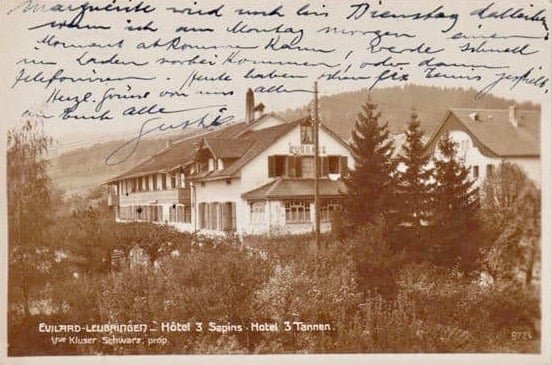 Marguerite wird noch bis Dienstag dableiben
wenn ich am Montag morgen einen
Moment abkommen kann, werde schnell
im Laden vorbei kommen, oder dann
telefonieren. Heute haben schon fix Tennis gespielt,
Herzl. Grüsse von uns allen
an Euch alle
EVILARD-LEUBRINGEN - Hôtel 3 Sapins - Hotel 3 Tannen.
Vve Kluser-Schwarz, prop.